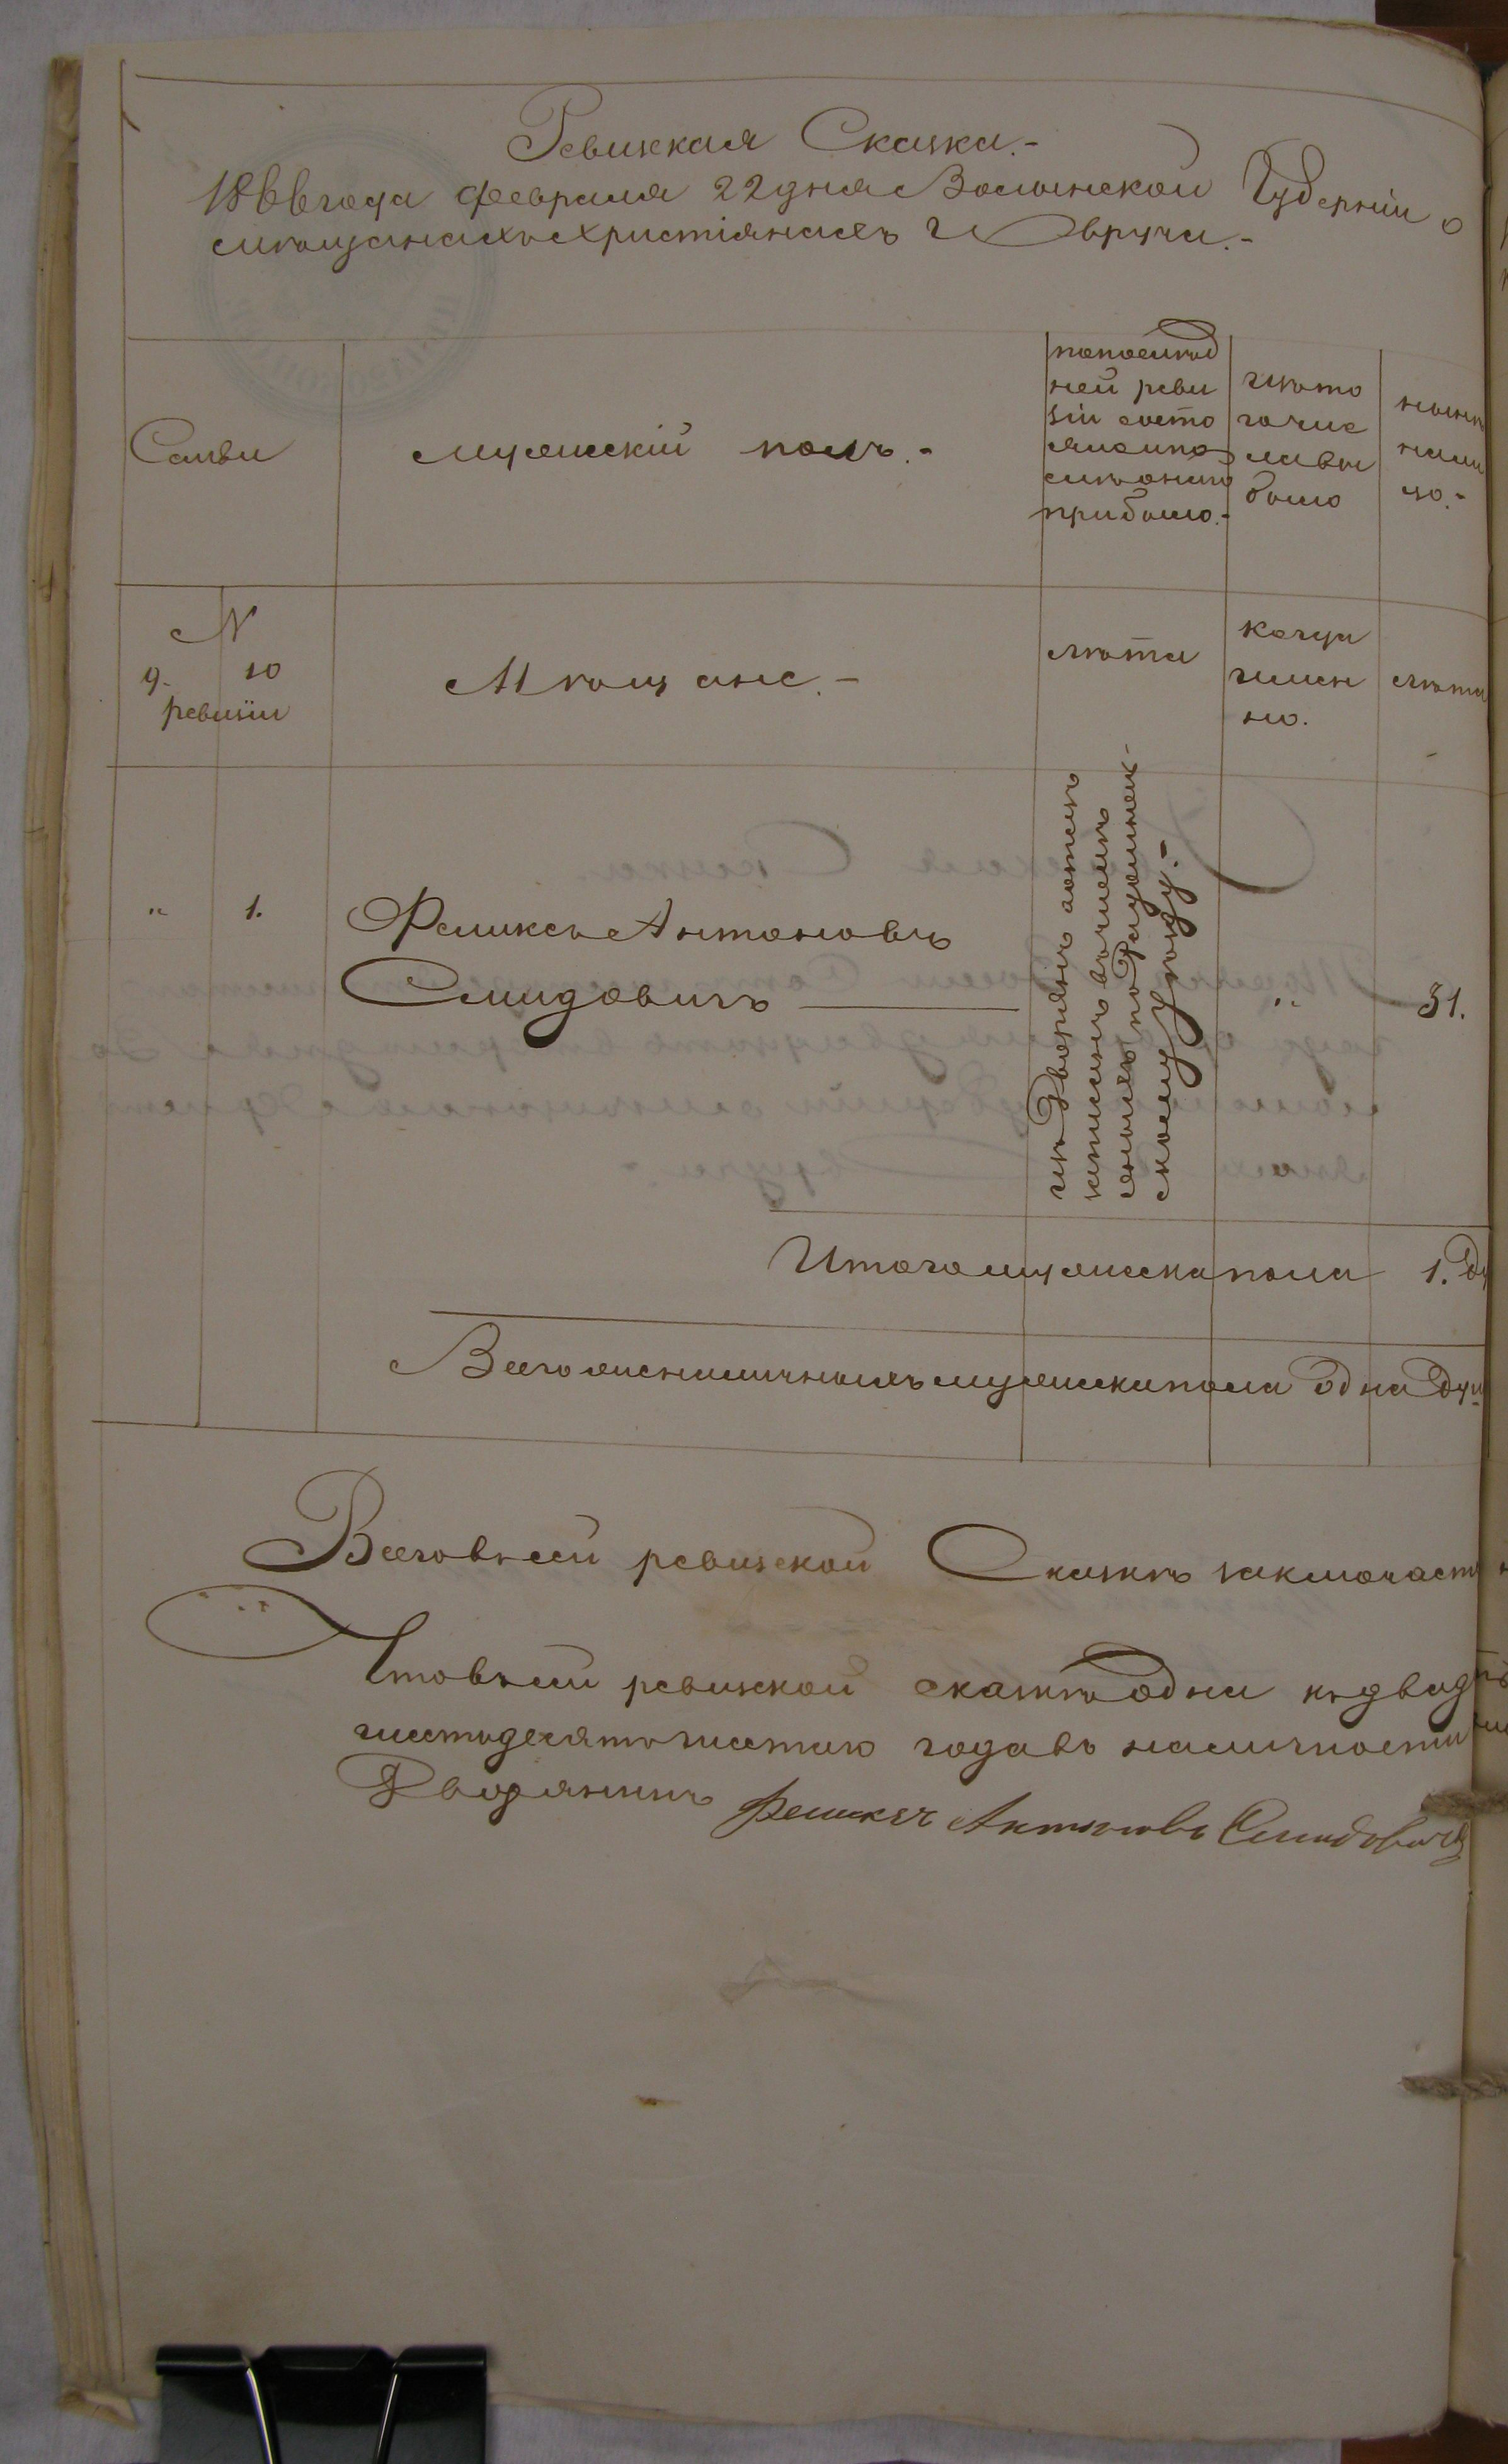 Ревизская Сказка.-
1866 года февраля 22 дня Волынской Губернiи о
мѣщанахъ христiянахъ г Овруча.-
Семьи
мужескiй полъ.-
по послѣд
ней реви
зiи состо
яло и по
слѣ оной
прибыло.-
изъ то
го чис
ла вы
было
нынѣ
на ли
цо.-
N
9. 10
ревизiи
Мѣщане.-
лѣта
когда
имен
но.
лѣта
" 1.
Феликсъ Антоновъ
Смидовичъ
изъ Дворянъ
записанъ
скому уѣзду.-
"
31.
Итого мужеска пола 1. Ду
Всего же наличныхъ мужеска пола одна душ
Всего въ сей ревизской Сказкѣ заключает
Что въ сей ревизской сказкѣ
шестьдесятъ шестаго года въ наличности
Дворянинъ Феликсъ Антоновъ Смидовичъ